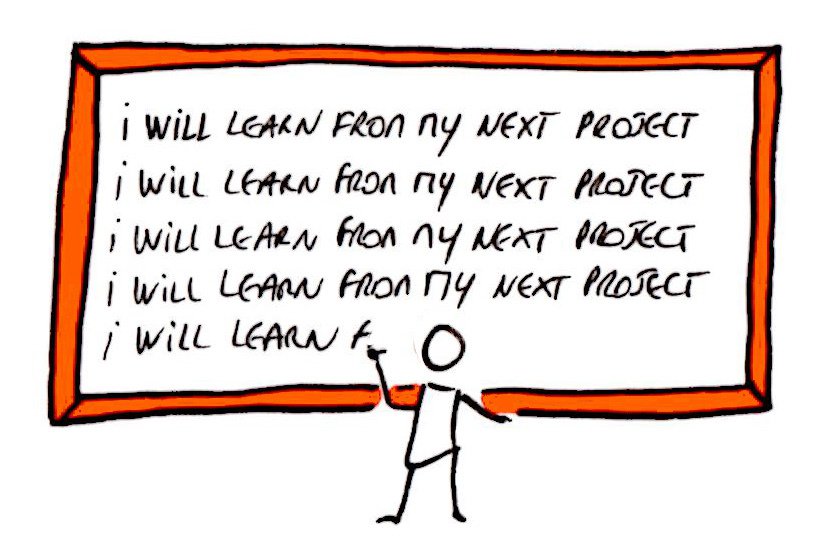 i WiLL LEARN FROM MY NEXT PROJECT
i WiLL LEARN FROM MY NEXT PROJECT
i WiLL LEARN FROM MY NEXT PROJECT
i WiLL LEARN FROM MY NEXT PROJECT
i WiLL LEARN F